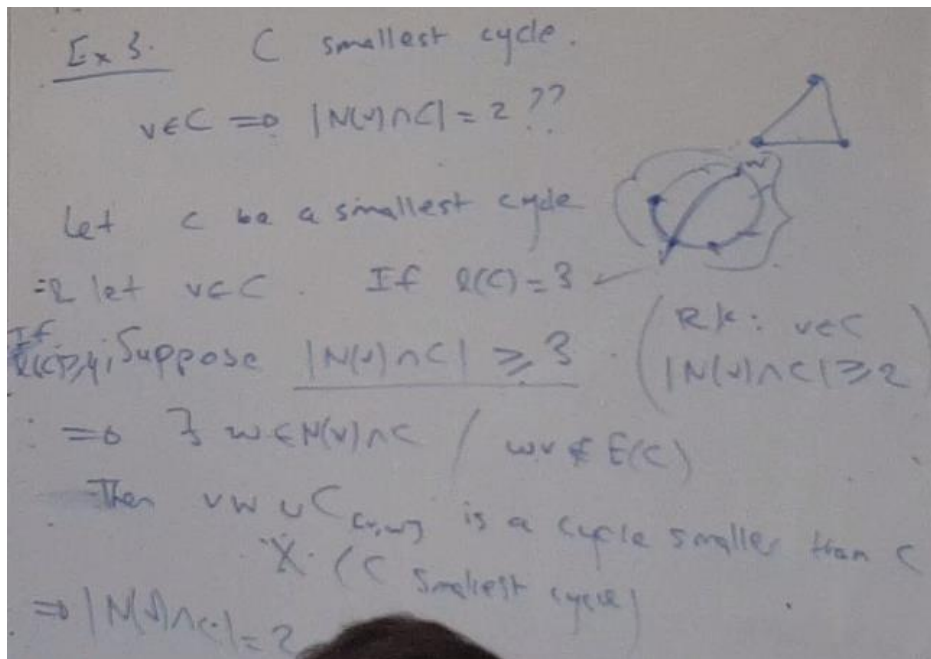 Ex 3. C smallest cycle.
v∈C ⇒ |N(v)∩C| = 2 ??
w
Let C be a smallest cycle
let v∈C. If l(C)=3 ✓
If l(C)≥4, Suppose |N(v)∩C| ≥ 3. (Rk: v∈C
|N(v)∩C| ≥ 2)
⇒ ∃ w∈N(v)∩C / wv ∉ E(C)
Then vw ∪ C[v,w] is a cycle smaller than C
X. (C smallest cycle)
⇒ |N(v)∩C| = 2